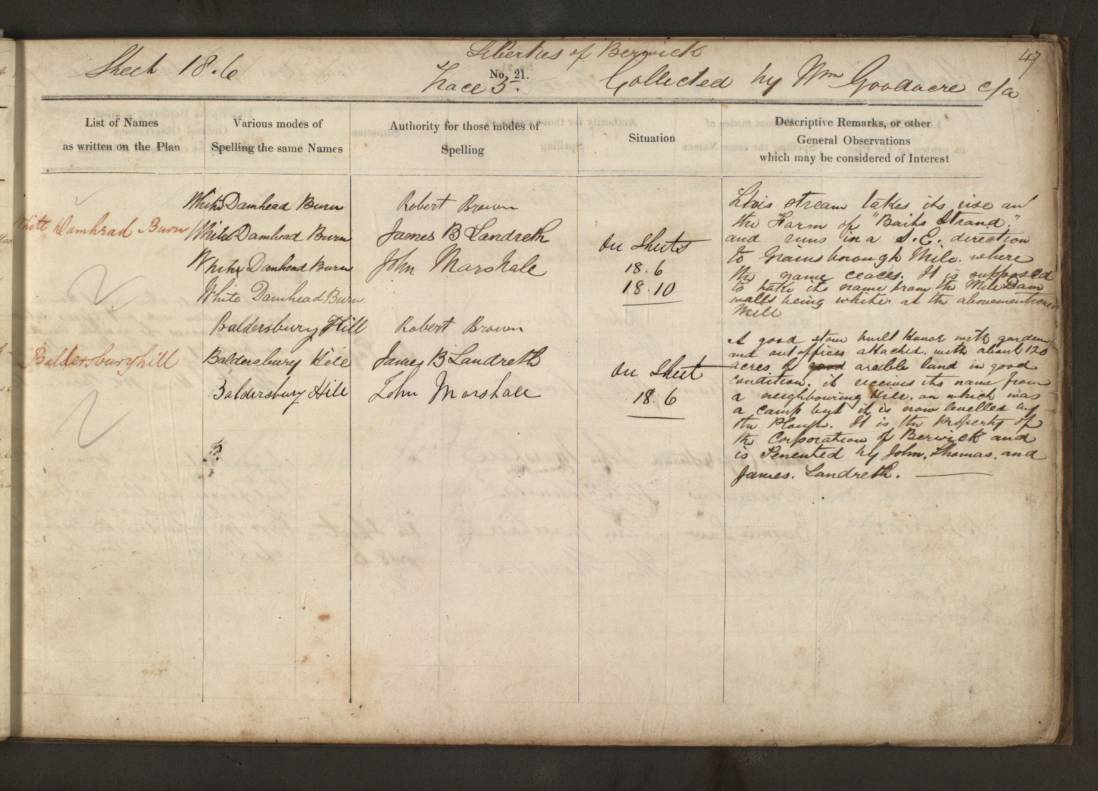 Liberties of Berwick
47
Sheet 18.6
No. 21.
Trace 3. Collected by Wm Goodacre c/a
List of Names
as written on the Plan
Various modes of
Spelling the same Names
Authority for those modes of
Spelling
Situation
Descriptive Remarks, or other
General Observations
which may be considered of Interest
White Damhead Burn
White Damhead Burn
White Damhead Burn
White Damhead Burn
White Damhead Burn
Robert Brown
James B Landreth
John Marshall
On Sheets
18.6
18.10
This stream takes its rise on
the Farm of "Baits Strand"
and runs in a S.E. direction
to Gainsborough Mile. where
the name ceaces. It is supposed
to take its name from the Mile Dam
walls being white at the abovementioned
Mill
Baldersburyhill
Baldersbury Hill
Baldersbury Hill
Baldersbury Hill
Robert Brown
James B Landreth
John Marshall
On Sheet
18.6
A good stone built House with garden
and outoffices attached, with about 120
acres of good arable land in good
condition. it receives its name from
a neighbouring Hill, on which was
a camp but it is now levelled by
the Plough. It is the Property of
the Corporation of Berwick and
is Tenented by John, Thomas, and
James. Landreth.